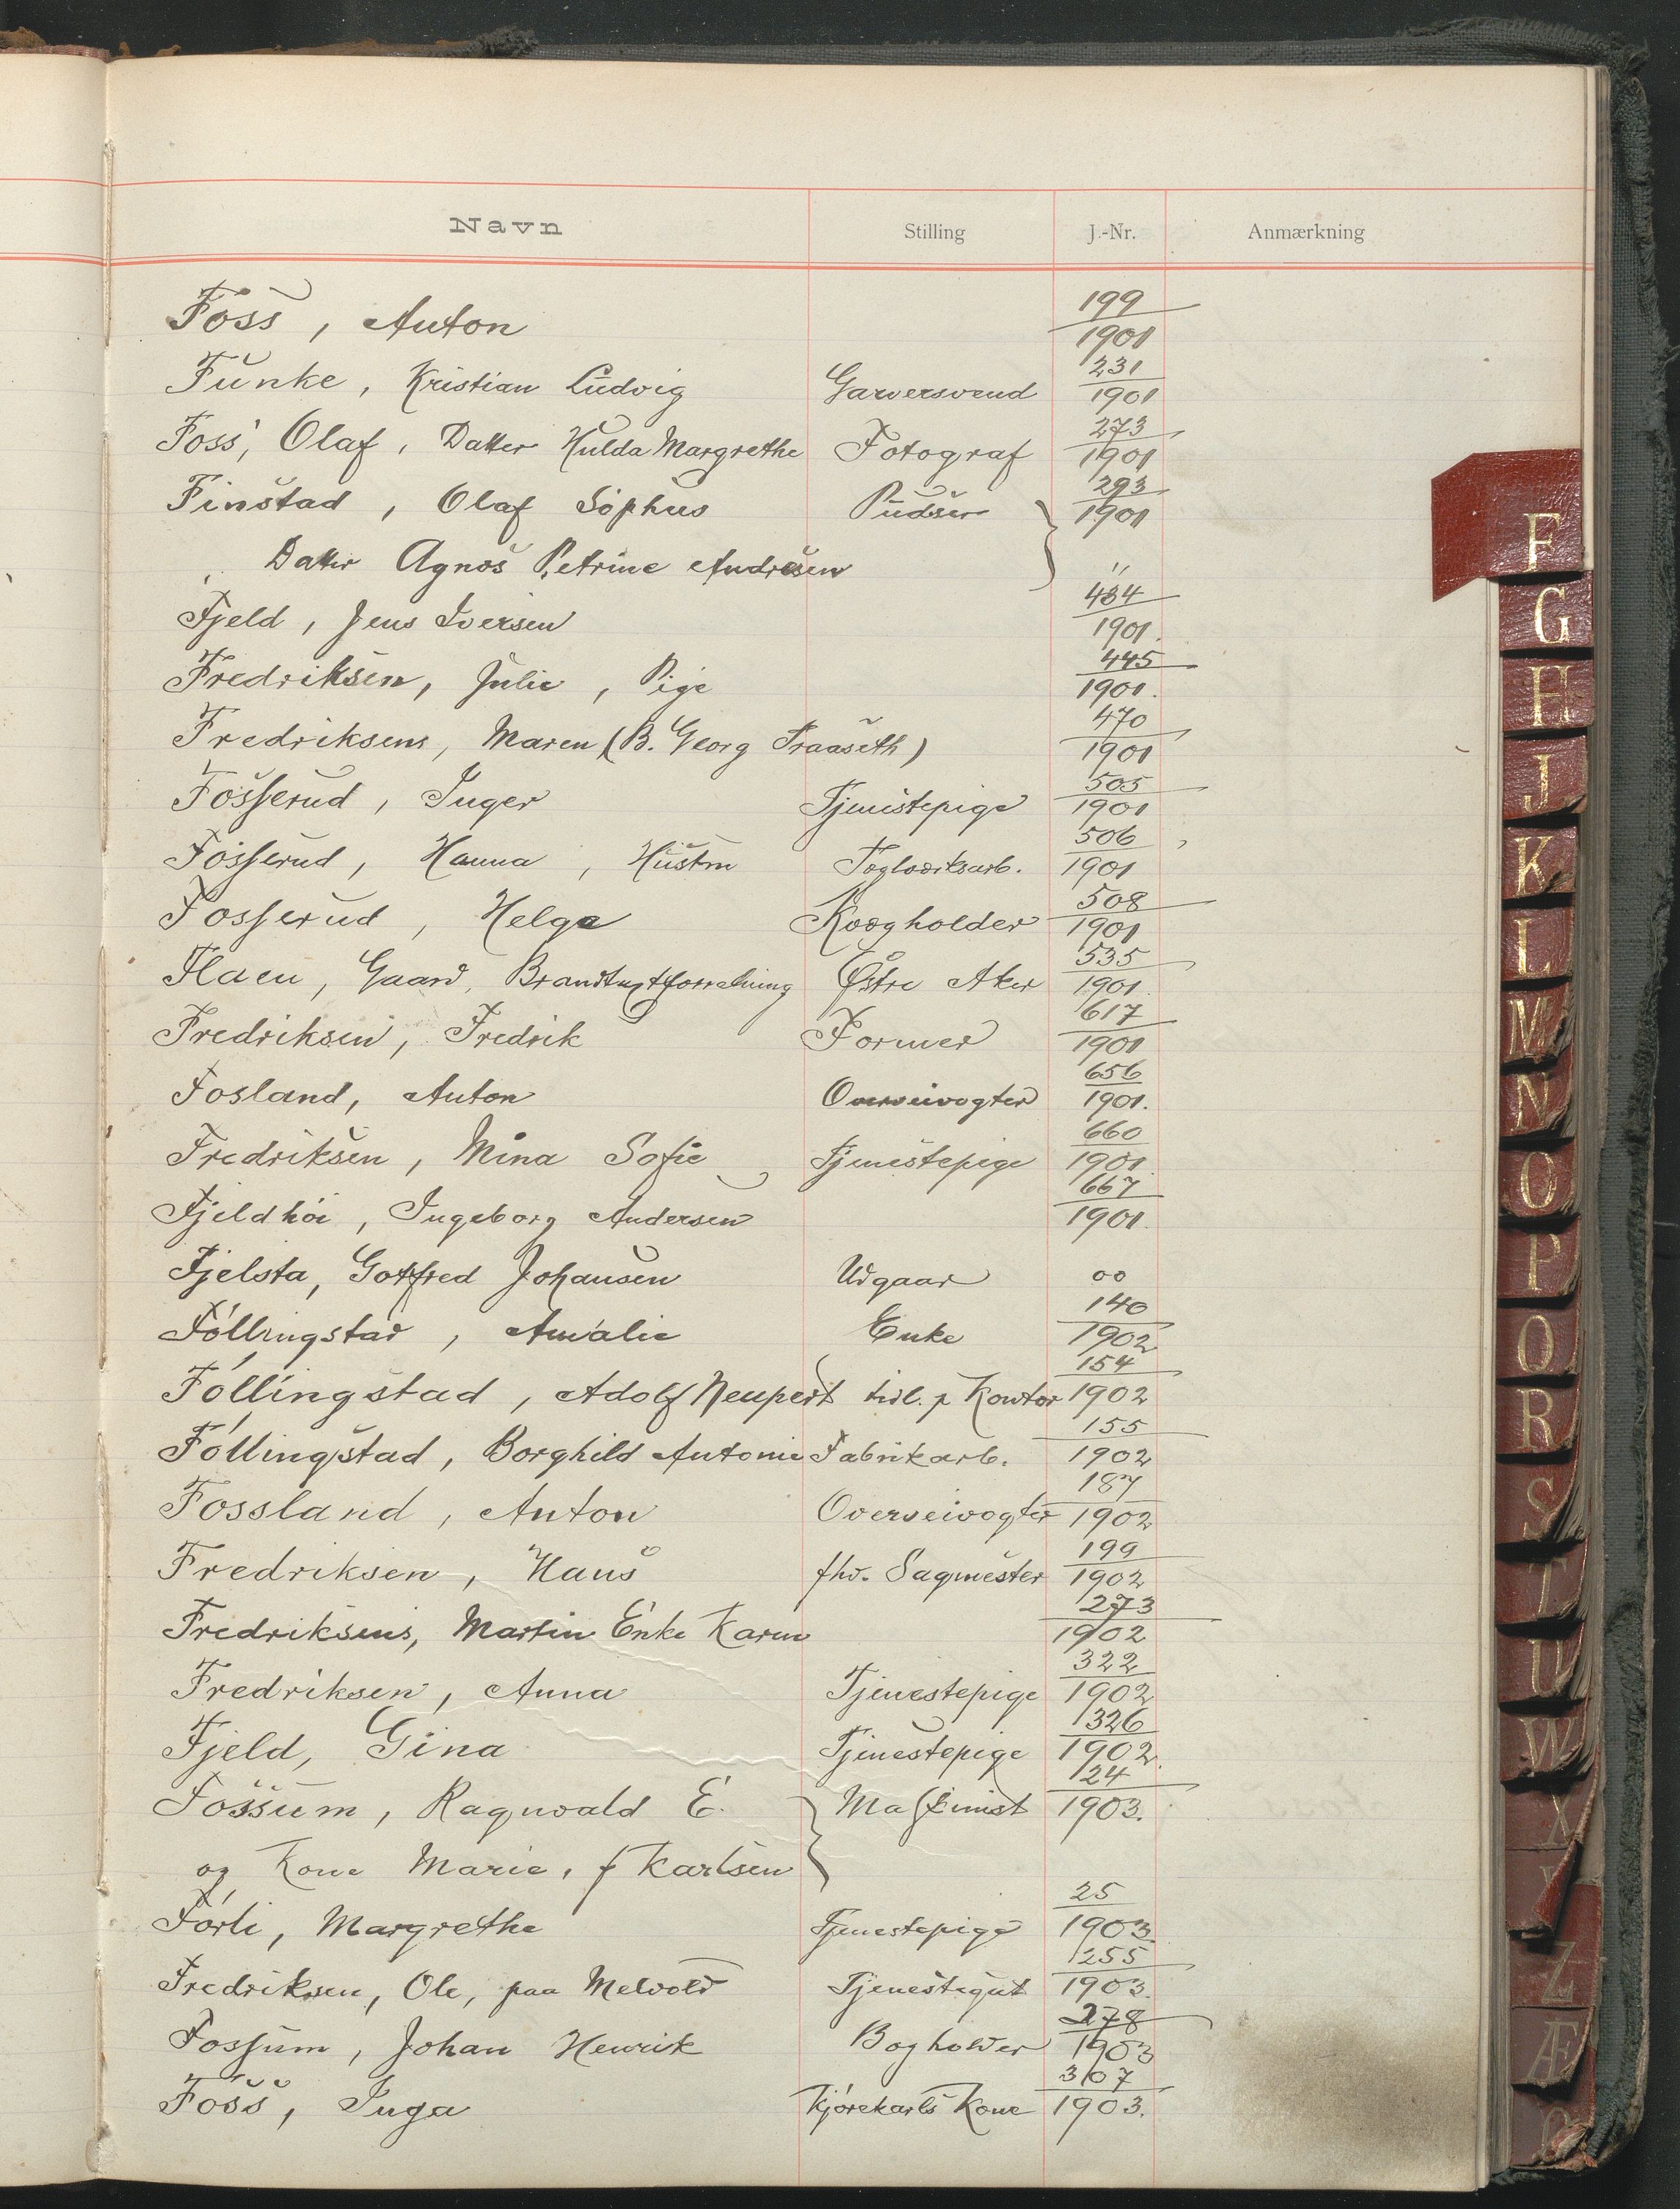 Navn Stilling J.-Nr. Anmærkning
Foss, Anton 199/1901
Funke, Kristian Ludvig Garversvend 231/1901
Foss, Olaf, Datter Hulda Margrethe Fotograf 273/1901
Finstad, Olaf Sophus Pudser 293/1901
Datter Agnes Petrine Andresen "
Fjeld, Jens Iversen 434/1901.
Fredriksen, Julie, Pige 445/1901.
Fredriksens, Maren (B. Georg Fraaseth) 470/1901
Fosserud, Inger Tjenestepige 505/1901
Fosserud, Hanna, Hustru Teglværksarb. 506/1901
Fosserud, Helge Kvægholder 508/1901
Flaen, Gaard, Østre Aker 535/1901.
Fredriksen, Fredrik Former 617/1901
Fosland, Anton Overveivogter 656/1901.
Fredriksen, Mina Sofie Tjenestepige 660/1901.
Fjeldhøi, Ingeborg Andersen 667/1901.
Fjelsta, Gotfred Johansen Udgaar oo
Føllingstad, Amalie Enke 140/1902
Føllingstad, Adolf Neupert tidl. p Kontor 154/1902
Føllingstad, Borghild Antonie Fabrikarb. 155/1902
Fossland, Anton Overveivogter 187/1902
Fredriksen, Hans fhv. Sagmester 199/1902
Fredriksens, Martin Enke Karen 273/1902
Fredriksen, Anna Tjenestepige 322/1902
Fjeld, Gina Tjenestepige 326/1902.
Fossum, Ragnvald E. Maskinist 24/1903.
og Kone Marie, f Karlsen
Førli, Margrethe Tjenestepige 25/1903
Fredriksen, Ole, paa Melvold Tjenestegut 255/1903.
Fossum, Johan Henrik Bogholder 278/1903
Foss, Inga Kjørekarls Kone 307/1903.
F
G
H
J
K
L
M
N
O
P
Q
R
S
T
U
W
X
Y
Z
Æ
Ø